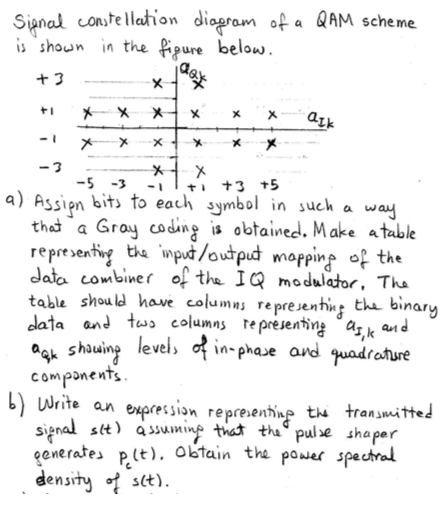 Signal constellation diagram of a QAM scheme
is shown in the figure below.
aQk
+3
+1
aIk
-1
-3
-5 -3 -1 +1 +3 +5
a) Assign bits to each symbol in such a way
that a Gray coding is obtained. Make a table
representing the input/output mapping of the
data combiner of the IQ modulator. The
table should have columns representing the binary
data and two columns representing aI,k and
aQk showing levels of in-phase and quadrature
components.
b) Write an expression representing the transmitted
signal s(t) assuming that the pulse shaper
generates pc(t). Obtain the power spectral
density of s(t).